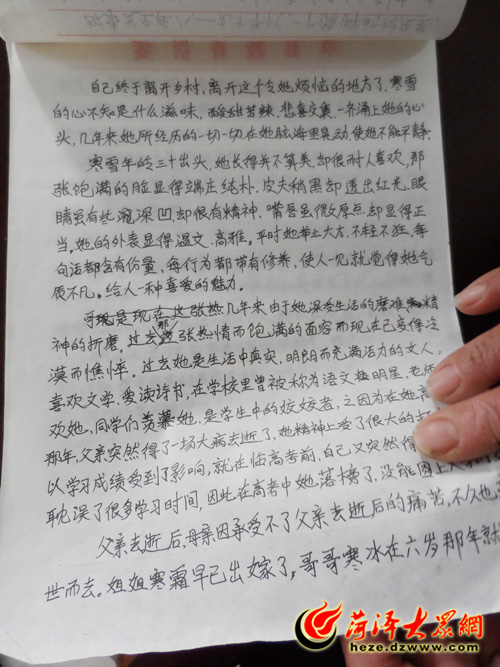 自己终于离开乡村，离开这个令她烦恼的地方了，寒雪
的心不知是什么滋味，酸甜苦辣、悲喜交集，一齐涌上她的心
头，几年来她所经历的一切一切在她脑海里晃动使她不能平静。
寒雪年龄三十出头，她长得并不算美，却很耐人喜欢，那
张饱满的脸显得端庄纯朴，皮夫稍黑却透出红光，眼
睛虽有些深凹，却很有精神，嘴唇虽微厚点却显得正
当。她的外表显得温文、高雅。平时她举止大方，不轻不狂，每
句话都含有份量，每行为都带有修养，使人一见就觉得她气
质不凡。给人一种喜爱的魅力。
可现是现在这张热几年来由于她深受生活的磨难和精
神的折磨，过去那张热情而饱满的面容而现在已变得冷
漠而憔悴。过去她是生活中真实、明朗而充满活力的女人，
喜欢文学，爱读诗书，在学校里曾被称为语文楂明星，老师
欢她，同学们羡慕她，是学生中的姣姣者，之因为在她高
那年，父亲突然得了一场大病去逝了，她精神上受了很大的打
以学习成绩受到了影响，就在临高考前，自己又突然得
耽误了很多学习时间，因此在高考中她落榜了，没能圆上大学的
父亲去逝后，母亲因承受不了父亲去逝后的痛苦，不久也
世而去。姐姐寒霜早已出嫁了，哥哥寒冰在六岁那年就
菏泽大众網
heze.dzwww.com